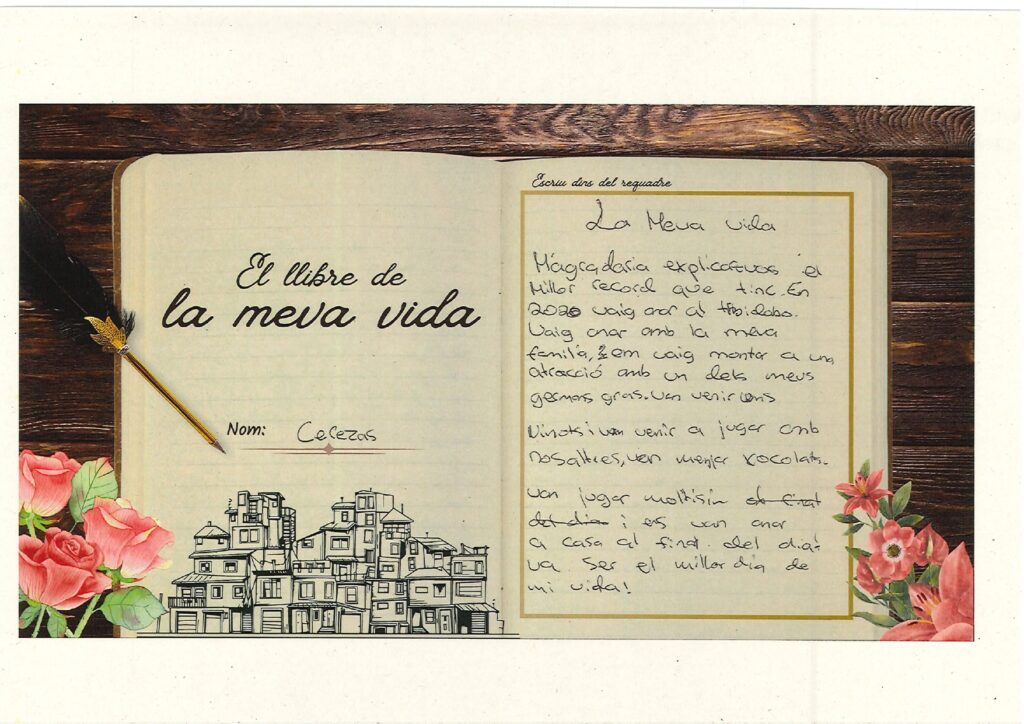 El llibre de
la meva vida
Nom: Cerezas
Escriu dins del requadre
La Meva vida
M'agradaria explicatvos el
Millor record que tinc. En
2020 vaig anar al tibidabo.
Vaig anar amb la meva
familía, em vaig montar a una
atracció amb un dels meus
germans grans. van venir uns
Vinotsi van venir a jugar amb
nosaltres, van menjar xocolata.
van jugar moltisim al final
del dia i es van anar
a casa al final del dia!
va ser el millor dia de
mi vida!